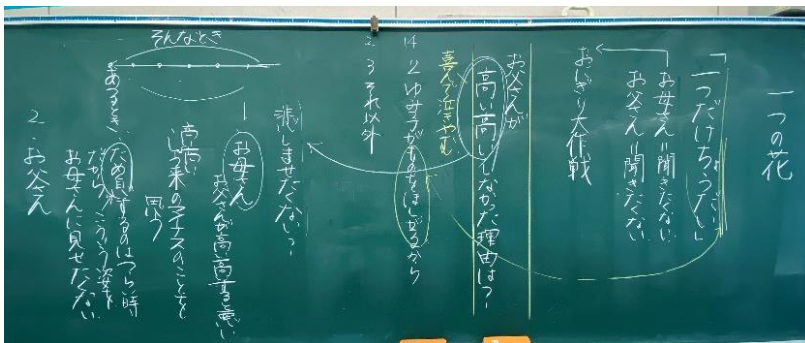 一つの花
「一つだけちょうだい」
お母さん＝聞きたくない
お父さん＝聞きたくない
おにぎり大作戦
お父さんが
高い高いしなかった理由は？
喜んで泣きやむ
14 2 ゆみ子がものをほしがるから
2 3 それ以外
悲しませたくない？
そんなとき
お母さん
お父さんが高い高いすると悪い
高い
しょう来のマイナスのことを
思う
きめつるとき
ため息するのはつらい時
だから、こういう姿を
お母さんに見せたくない
2.お父さん